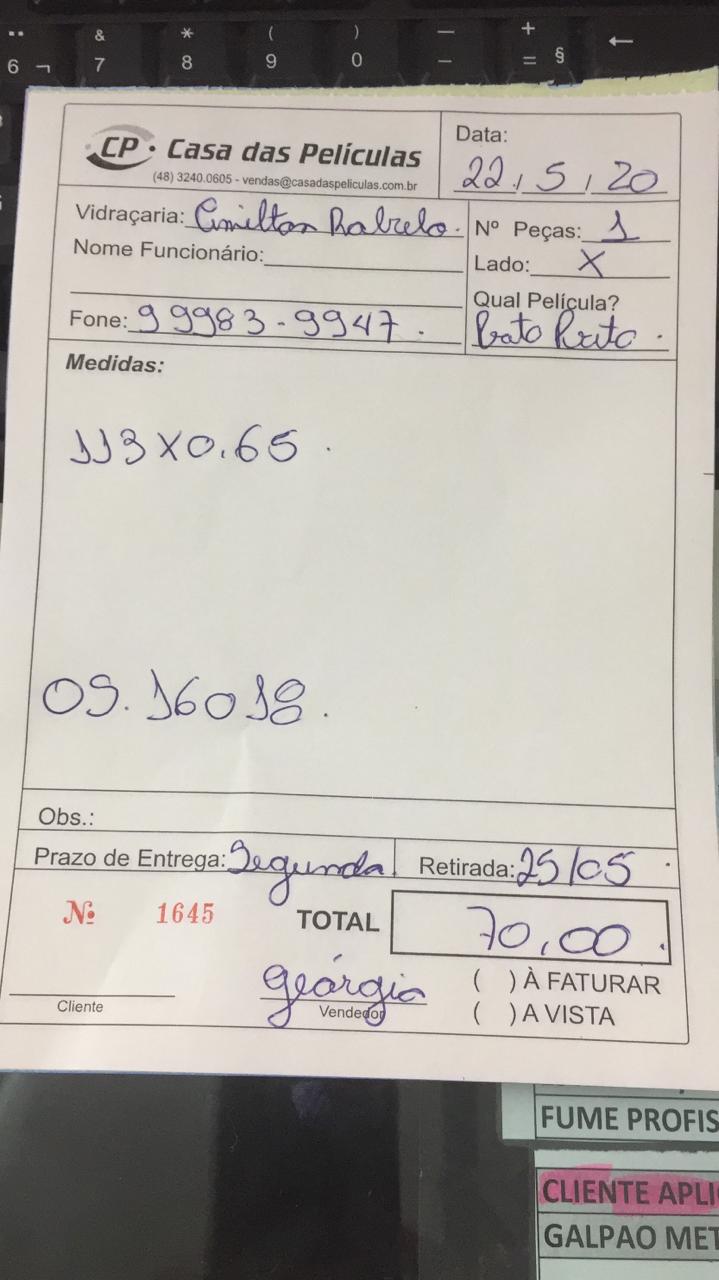 & * ( ) — +
6 ¬ 7 8 9 0 – = § ←
CP · Casa das Películas
(48) 3240.0605 - vendas@casadaspeliculas.com.br
Data:
22/5/20
Vidraçaria: Emilton Rabelo.
Nº Peças: 1
Nome Funcionário:
Lado: X
Qual Película?
Fone: 99983-9947.
Prato Preto.
Medidas:
113X0.65.
OS. 16018.
Obs.:
Prazo de Entrega: Segunda
Retirada: 25/05
Nº 1645
TOTAL 70,00.
Cliente
Geórgia
Vendedor
( ) À FATURAR
( ) A VISTA
FUME PROFIS
CLIENTE APLI
GALPAO MET